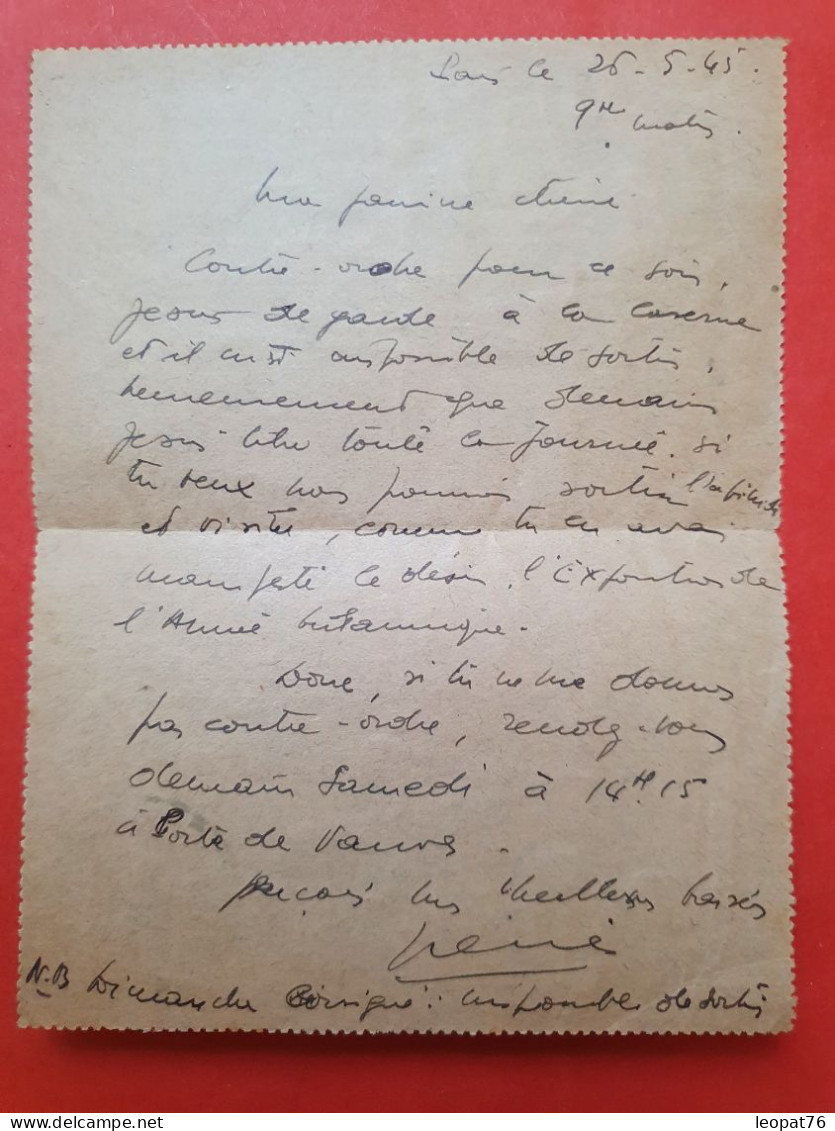 Paris le 25-5-45.
9H matin.
Ma Janine chérie
Contre-ordre pour ce soir,
je suis de garde à la caserne
et il m'est impossible de sortir,
que demain
je suis libre toute la journée. si
tu veux nous pourrions sortir
et visiter, comme tu en avais
manifesté le désir, l'Exposition de
l'Armée britannique.
Donc, si tu ne me donnes
pas contre-ordre, rendez-vous
demain Samedi à 14H.15
à Porte de Vanves.
Reçois mes meilleurs baisers
N.B Dimanche Consigné: impossible de sortir
leopat76